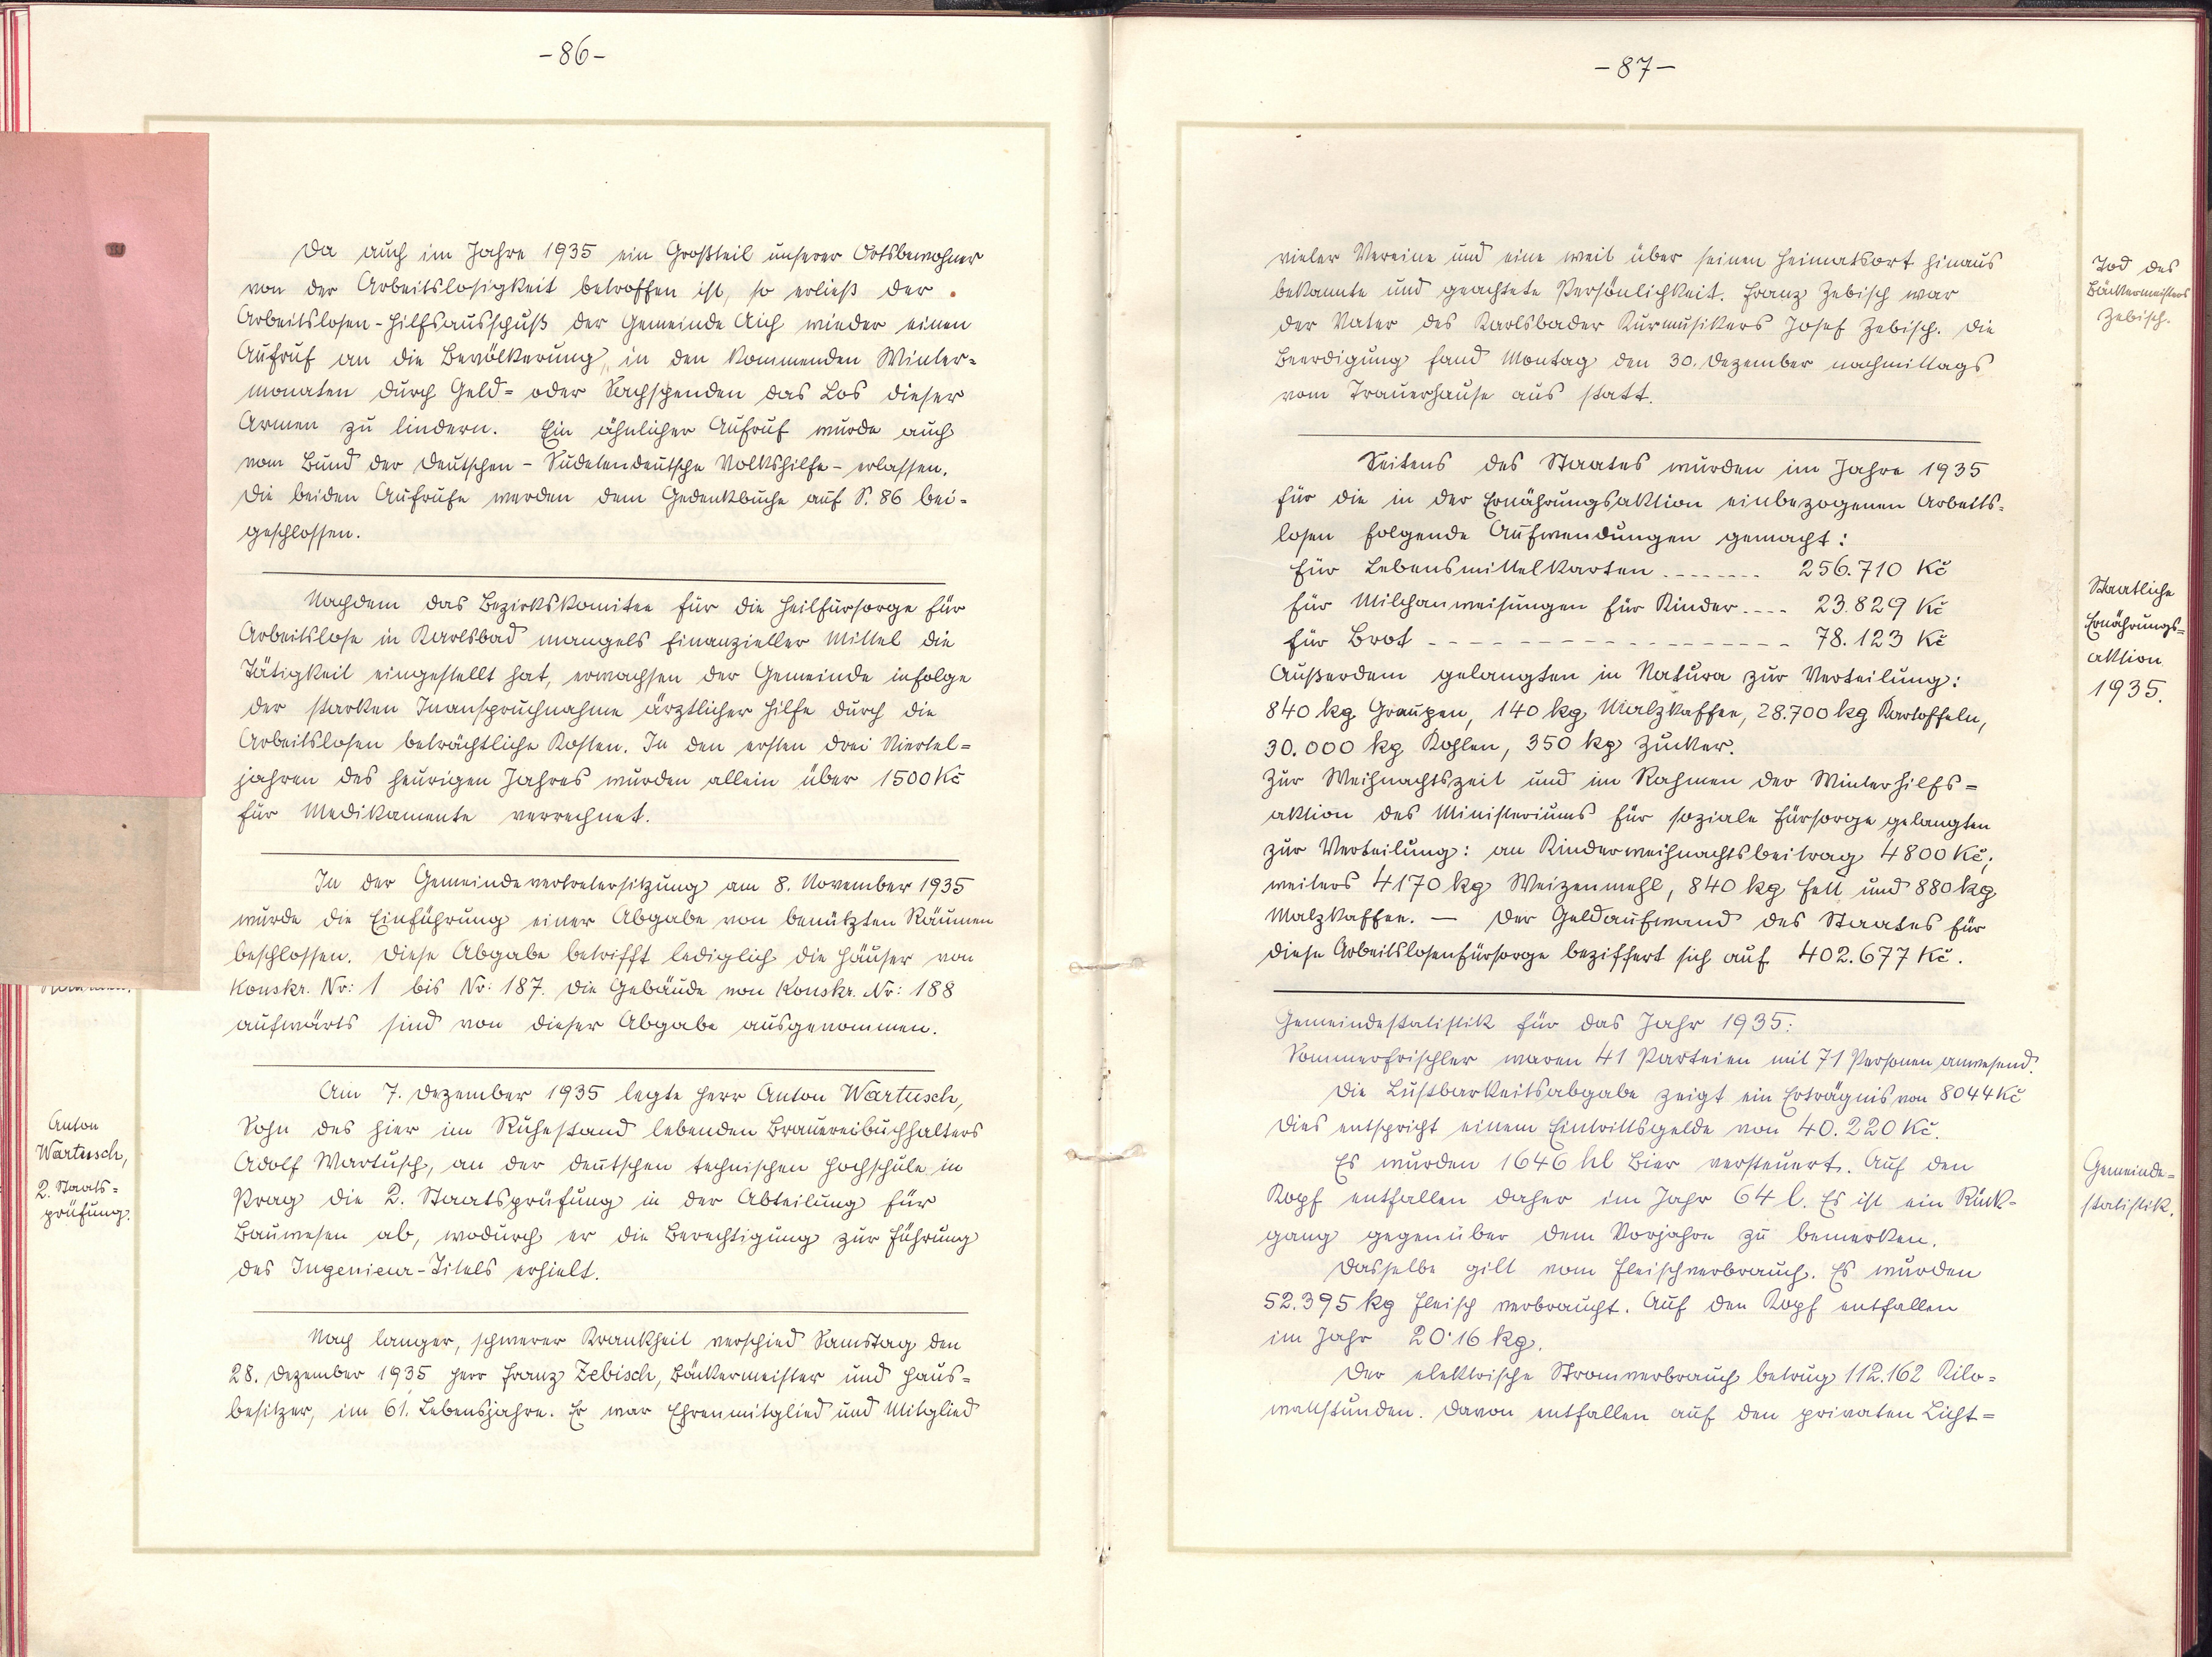 -86-
Da auch im Jahre 1935 ein Großteil unserer Ortsbewohner
von der Arbeitslosigkeit betroffen ist, so erließ der
Arbeitslosen-Hilfsausschuß der Gemeinde Aich wieder einen
Aufruf an die Bevölkerung, in den kommenden Winter=
monaten durch Geld= oder Sachspenden das Los dieser
Armen zu lindern. Ein ähnlicher Aufruf wurde auch
vom Bund der Deutschen - Sudetendeutsche Volkshilfe - erlassen.
Die beiden Aufrufe werden dem Gedenkbuche auf S. 86 bei=
geschlossen.
Nachdem das Bezirkskomitee für die Heilfürsorge für
Arbeitslose in Karlsbad mangels finanzieller Mittel die
Tätigkeit eingestellt hat, erwachsen der Gemeinde infolge
der starken Inanspruchnahme ärztlicher Hilfe durch die
Arbeitslosen beträchtliche Kosten. In den ersten drei Viertel=
jahren des heurigen Jahres wurden allein über 1500 Kč
für Medikamente verrechnet.
In der Gemeindevertretersitzung am 8. November 1935
wurde die Einführung einer Abgabe von benützten Räumen
beschlossen. Diese Abgabe betrifft lediglich die Häuser von
Konskr. Nr: 1 bis Nr: 187. Die Gebäude von Konskr. Nr: 188
aufwärts sind von dieser Abgabe ausgenommen.
Am 7. Dezember 1935 legte Herr Anton Wartusch,
Sohn des hier im Ruhestand lebenden Brauereibuchhalters
Adolf Wartusch, an der deutschen technischen Hochschule in
Prag die 2. Staatsprüfung in der Abteilung für
Bauwesen ab, wodurch er die Berechtigung zur Führung
des Ingenieur-Titels erhielt.
Anton
Wartusch,
2. Staats=
prüfung.
Nach langer, schwerer Krankheit verschied Samstag den
28. Dezember 1935 Herr Franz Zebisch, Bäckermeister und Haus=
besitzer, im 61. Lebensjahre. Er war Ehrenmitglied und Mitglied
-87-
vieler Vereine und eine weit über seinen Heimatsort hinaus
bekannte und geachtete Persönlichkeit. Franz Zebisch war
der Vater des Karlsbader Kurmusikers Josef Zebisch. Die
Beerdigung fand Montag den 30. Dezember nachmittags
vom Trauerhause aus statt.
Tod des
Bäckermeisters
Zebisch.
Seitens des Staates wurden im Jahre 1935
für die in der Ernährungsaktion einbezogenen Arbeits=
losen folgende Aufwendungen gemacht:
für Lebensmittelkarten -------- 256.710 Kč
für Milchanweisungen für Kinder ---- 23.829 Kč
für Brot ---------------- 78.123 Kč
Außerdem gelangten in Natura zur Verteilung:
840 kg Graupen, 140 kg Malzkaffee, 28.700 kg Kartoffeln,
30.000 kg Kohlen, 350 kg Zucker.
Zur Weihnachtszeit und im Rahmen der Winterhilfs=
aktion des Ministeriums für soziale Fürsorge gelangten
zur Verteilung: an Kinderweihnachtsbeitrag 4800 Kč;
weiters 4170 kg Weizenmehl, 840 kg Fett und 880 kg
Malzkaffee. — Der Geldaufwand des Staates für
diese Arbeitslosenfürsorge beziffert sich auf 402.677 Kč.
Staatliche
Ernährungs=
aktion
1935.
Gemeindestatistik für das Jahr 1935:
Sommerfrischler waren 41 Parteien mit 71 Personen anwesend.
Die Lustbarkeitsabgabe zeigt ein Erträgnis von 8044 Kč
Dies entspricht einem Eintrittsgelde von 40.220 Kč.
Es wurden 1646 hl Bier versteuert. Auf den
Kopf entfallen daher im Jahr 64 l. Es ist ein Rück-
gang gegenüber dem Vorjahre zu bemerken.
Dasselbe gilt vom Fleischverbrauch. Es wurden
52.395 kg Fleisch verbraucht. Auf den Kopf entfallen
im Jahr 20·16 kg.
Der elektrische Stromverbrauch betrug 112.162 Kilo=
wattstunden. Davon entfallen auf den privaten Licht=
Gemeinde=
statistik.